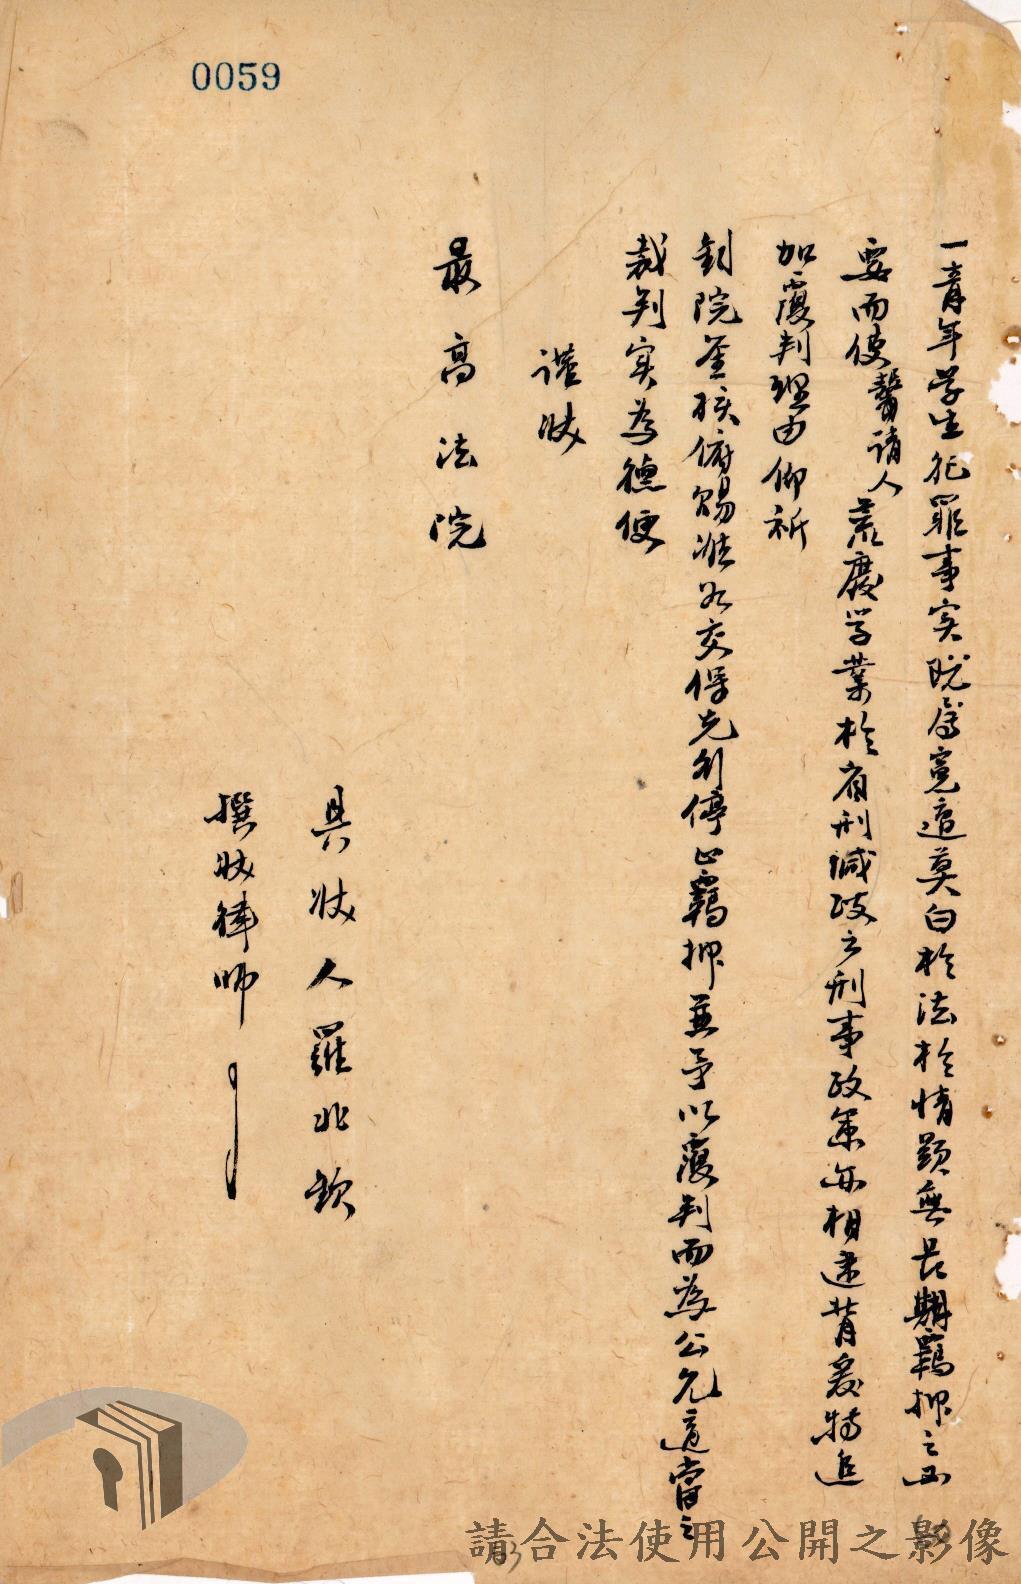 0059
一青年学生犯罪事实既属冤遭莫白於法於情顕無長期羈押之必
要而使聲請人荒廢学業於省刑減政之刑事政策亦相違背爰特追
加覆判理由仰祈
鈞院鉴核俯賜准为交保先行停止羈押並予以覆判而為公允適當之
裁判实為德便
謹狀
最高法院
具狀人羅北欽
撰狀律師
請合法使用公開之影像